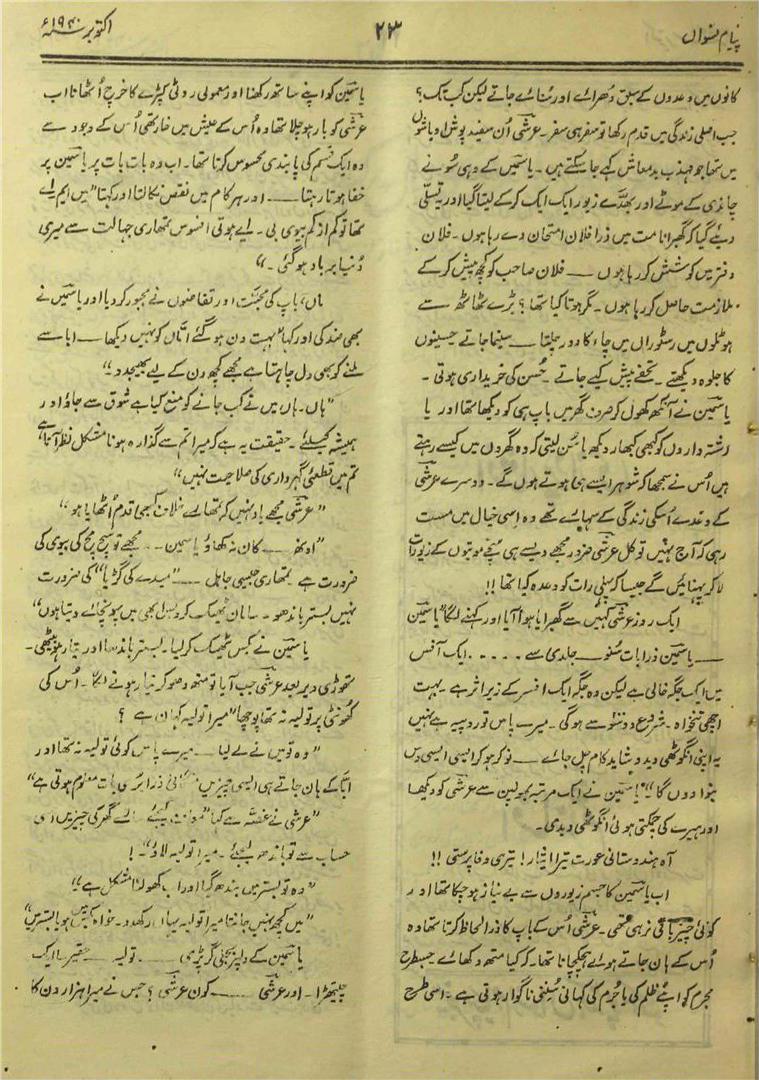 پیام نسواں
۲۳
اکتوبر سنہ ۱۹۴۰ء
کانوں میں وعدوں کے سبق دُھرائے اور سُنائے جاتے لیکن کب تک؟
جب اصلی زندگی میں قدم رکھا تو صفر ہی صفر۔ عرشی اُن سفید پوش اوباشوں
میں تھا جو مہذب بدمعاش کہے جا سکتے ہیں۔ یاسمین کے وہی سونے
چاندی کے موٹے اور بھدّے زیور ایک ایک کر کے لیتا گیا اور تسلّی
دیئے گیا کہ گھبرانا مت میں ذرا فلان امتحان دے رہا ہوں۔ فلان
دفتر میں کوشش کر رہا ہوں — فلان صاحب کو کچھ پیش کر کے
ملازمت حاصل کر رہا ہوں۔ مگر ہوتا کیا تھا؟ بڑے ٹھاٹھ سے
ہوٹلوں میں رسٹوراں میں چاء کا دور چلتا — سینما جاتے حسینوں
کا جلوہ دیکھتے۔ تحفے پیش کیے جاتے۔ حُسن کی خریداری ہوتی۔
یاسمین نے آنکھ کھول کر صرف گھر میں باپ ہی کو دیکھا تھا اور یا
رشتہ داروں کو کبھی کبھار دیکھ یا سُن لیتی کہ وہ گھروں میں کیسے رہتے
ہیں اُس نے سمجھا کہ شوہر ایسے ہی ہوتے ہوں گے۔ دوسرے عرشی
کے وعدے اُسکی زندگی کے سہارے تھے وہ اِسی خیال میں مست
رہی کہ آج نہیں تو کل عرشی ضرور مجھے ویسے ہی سچّے موتیوں کے زیورات
لا کر پہنائیں گے جیسا کہ پہلی رات کو وعدہ کیا تھا!!
ایک روز عرشی کہیں سے گھبرایا ہوا آیا اور کہنے لگا "یاسمین
— یاسمین ذرا بات سُنو — جلدی سے ..... ایک آفس
میں ایک جگہ خالی ہے لیکن وہ جگہ ایک افسر کے زیر اثر ہے۔ بہت
اچھی تنخواہ۔ شروع دو سو سے ہوگی۔ میرے پاس تو روپیہ ہے نہیں
یہ اپنی انگوٹھی دیدو شاید کام چل جائے — نوکر ہو کر ایسی ایسی دس
بنوا دوں گا"۔ یاسمین نے ایک مرتبہ بھولپن سے عرشی کو دیکھا
اور ہیرے کی چمکتی ہوئی انگوٹھی دیدی۔
آہ ہندوستانی عورت تیرا ایثار! تیری وفا پرستی!!
اب یاسمین کا جسم زیوروں سے بے نیاز ہو چکا تھا اور
کوئی چیز باقی نہ رہی تھی۔ عرشی اُس کے باپ کا ذرا لحاظ کرتا تھا وہ
اُس کے ہان جاتے ہوئے ہچکچاتا تھا۔ کہ کیا منھ دکھائے۔ جسطرح
مجرم کو اپنے ظلم کی یا جُرم کی کہانی سُننی ناگوار ہوتی ہے۔ اسی طرح
یاسمین کو اپنے ساتھ رکھنا اور معمولی روٹی کپڑے کا خرچ اُٹھانا اب
عرشی کو بار ہو چلا تھا وہ اُس کے عیش میں خار تھی اُس کے وجود سے
وہ ایک قسم کی پابندی محسوس کرتا تھا۔ اب وہ بات بات پر یاسمین پر
خفا ہوتا رہتا — اور ہر کام میں نقص نکالتا اور کہتا "میں ایم اے
تھا تو کم از کم بیوی بی۔ اے ہوتی افسوس تمھاری جہالت سے میری
دُنیا برباد ہو گئی۔"
ماں باپ کی محبّت اور تقاضوں نے مجبور کر دیا اور یاسمین نے
بھی ضد کی اور کہا "بہت دن ہو گئے امّاں کو نہیں دیکھا — ابا سے
ملنے کو بھی دل چاہتا ہے مجھے کچھ دن کے لیے بھیجدو۔"
"ہاں۔ ہاں میں نے کب جانے کو منع کیا ہے شوق سے جاؤ اور
ہمیشہ کیلئے۔ حقیقت یہ ہے کہ میرا تم سے گذارہ ہونا مشکل نظر آتا ہے
تم میں قطعی گھرداری کی صلاحیت نہیں"
"عرشی مجھے یاد نہیں کہ تمھارے خلاف کبھی قدم اُٹھایا ہو"
"اونھ — کان نہ کھاؤ یاسمین .. مجھے تو سچ مچ کی بیوی کی
ضرورت ہے تمھاری جیسی جاہل — "میدے کی گڑیا" کی ضرورت
نہیں بستر باندھو۔ سامان ٹھیک کرو میں ابھی پہونچائے دیتا ہوں"
یاسمین نے بکس ٹھیک کر لیا۔ بستر باندھا اور تیار ہو بیٹھی۔
تھوڑی دیر بعد عرشی جب آیا تو منھ دھو کر تیار ہونے لگا۔ اُس کی
کھونٹی پر تولیہ نہ تھا پوچھا "میرا تولیہ کہاں ہے؟
"وہ تو میں نے لے لیا — میرے پاس کوئی تولیہ نہ تھا اور
ابّا کے ہان جاتے ہی ایسی چیزیں ذرا بُری بات معلوم ہوتی ہے"
"عرشی نے غصّہ سے کہا "معاف کیجئے گھر کی چیزیں اسی
حساب سے تو باندھ لیجئے۔ میرا تولیہ لاؤ"۔!
"وہ تو بستر میں بندھ گیا اور اب کھولنا مشکل ہے"
"میں کچھ نہیں جانتا میرا تولیہ یہاں رکھدو۔ خواہ بکس میں ہو یا بستر میں"
یاسمین کے دل پر بجلی گر پڑی .... تولیہ — حقیر سا ایک
چیتھڑا۔ اور عرشی — کون عرشی؟ جس نے میرا ہزار دن کا